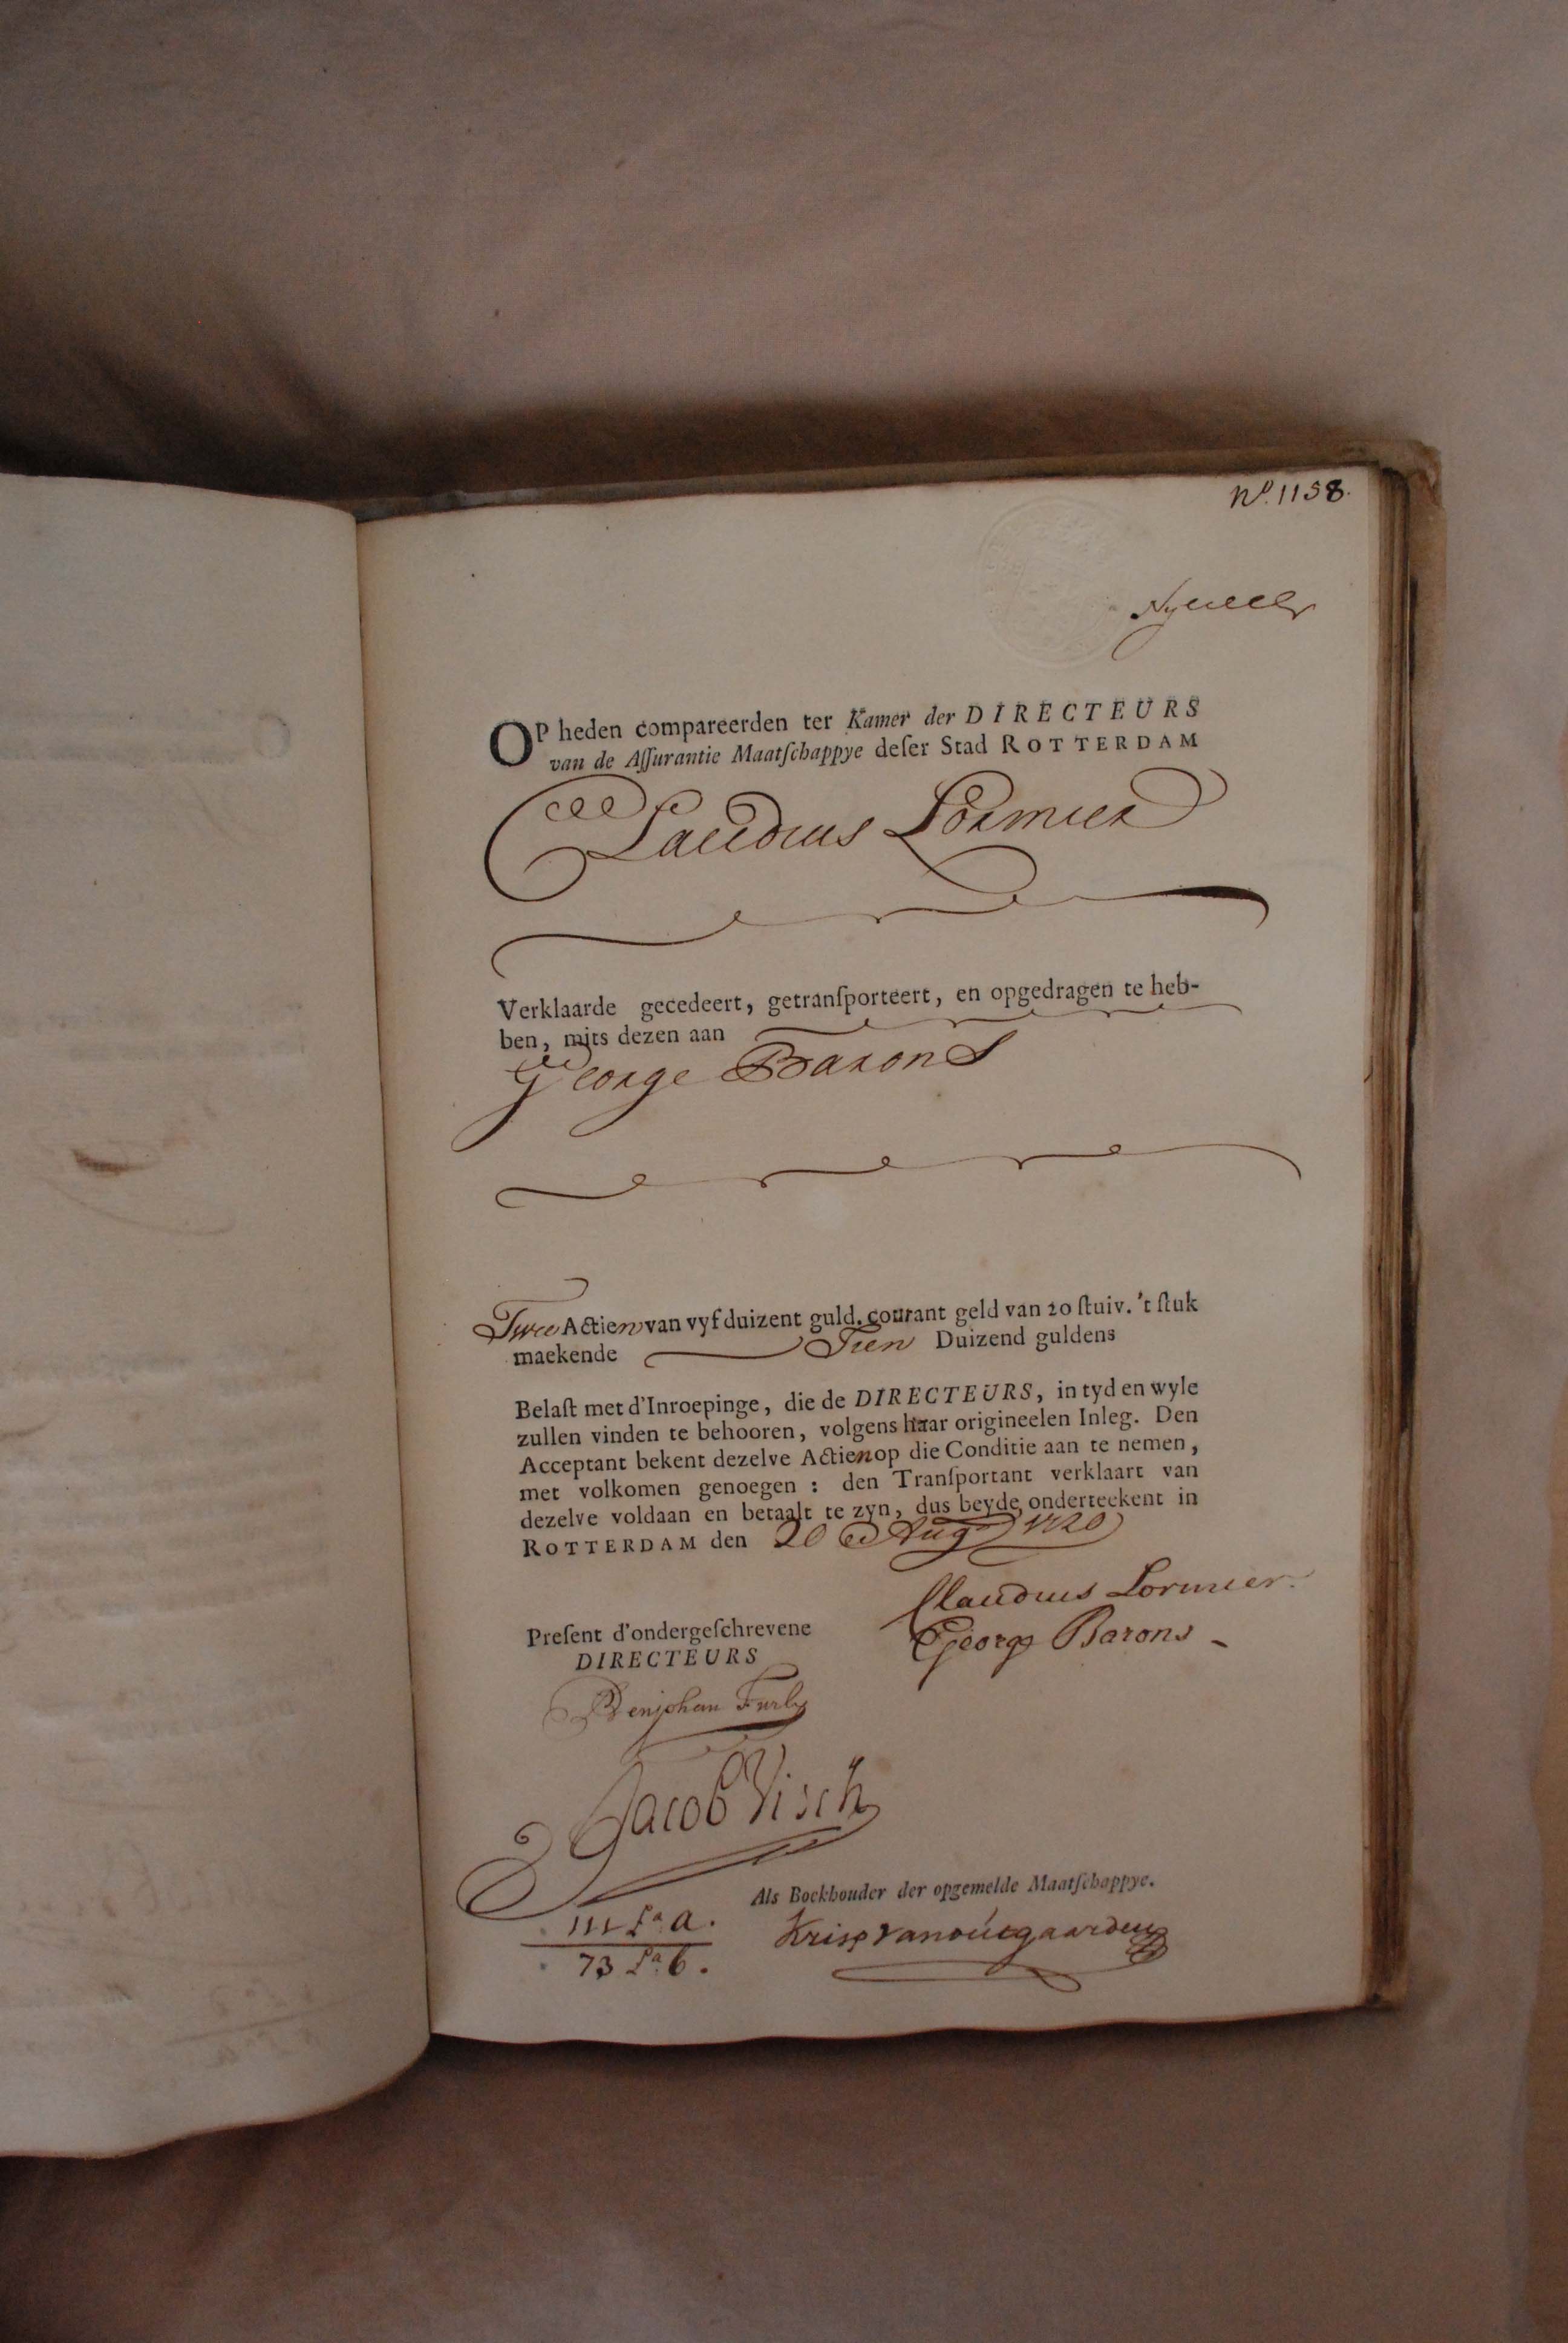 No. 1158.
OP heden compareerden ter Kamer der DIRECTEURS
van de Aſſurantie Maatſchappye deſer Stad ROTTERDAM
Claudius Lormier
Verklaarde gecedeert, getranſporteert, en opgedragen te heb-
ben, mits dezen aan
George Barons
Twee Actien van vyf duizent guld. courant geld van 20 ſtuiv. 't ſtuk
maekende Tien Duizend guldens
Belaſt met d'Inroepinge, die de DIRECTEURS, in tyd en wyle
zullen vinden te behooren, volgens haar origineelen Inleg. Den
Acceptant bekent dezelve Actien op die Conditie aan te nemen,
met volkomen genoegen : den Tranſportant verklaart van
dezelve voldaan en betaalt te zyn, dus beyde onderteekent in
ROTTERDAM den 20 Aug 1720
Claudius Lormier.
George Barons
Preſent d'ondergeſchrevene
DIRECTEURS
Benjohan Furly
Jacob Visch
Als Boekhouder der opgemelde Maatſchappye.
La. a.
73 La. b.